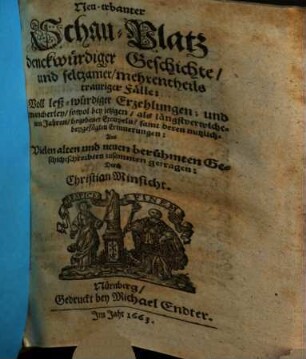 Neu-erbauter
Schau-Platz
denckwürdiger Geschichte/
und seltzamer/mehrentheils
trauriger Fälle:
Voll lesz-würdiger Erzehlungen: und
wie jetzigen/ als längstverwiche-
nen Jahren/ begebener Exempeln/ samt deren nutzlich-
beygefügten Erinnerungen:
Aus
Vielen alten und neuen berühmten Ge-
schichtschreibern zusammen getragen:
Durch
Christian Minsicht.
Nürnberg/
Gedruckt bey Michael Endter.
Im Jahr 1661.